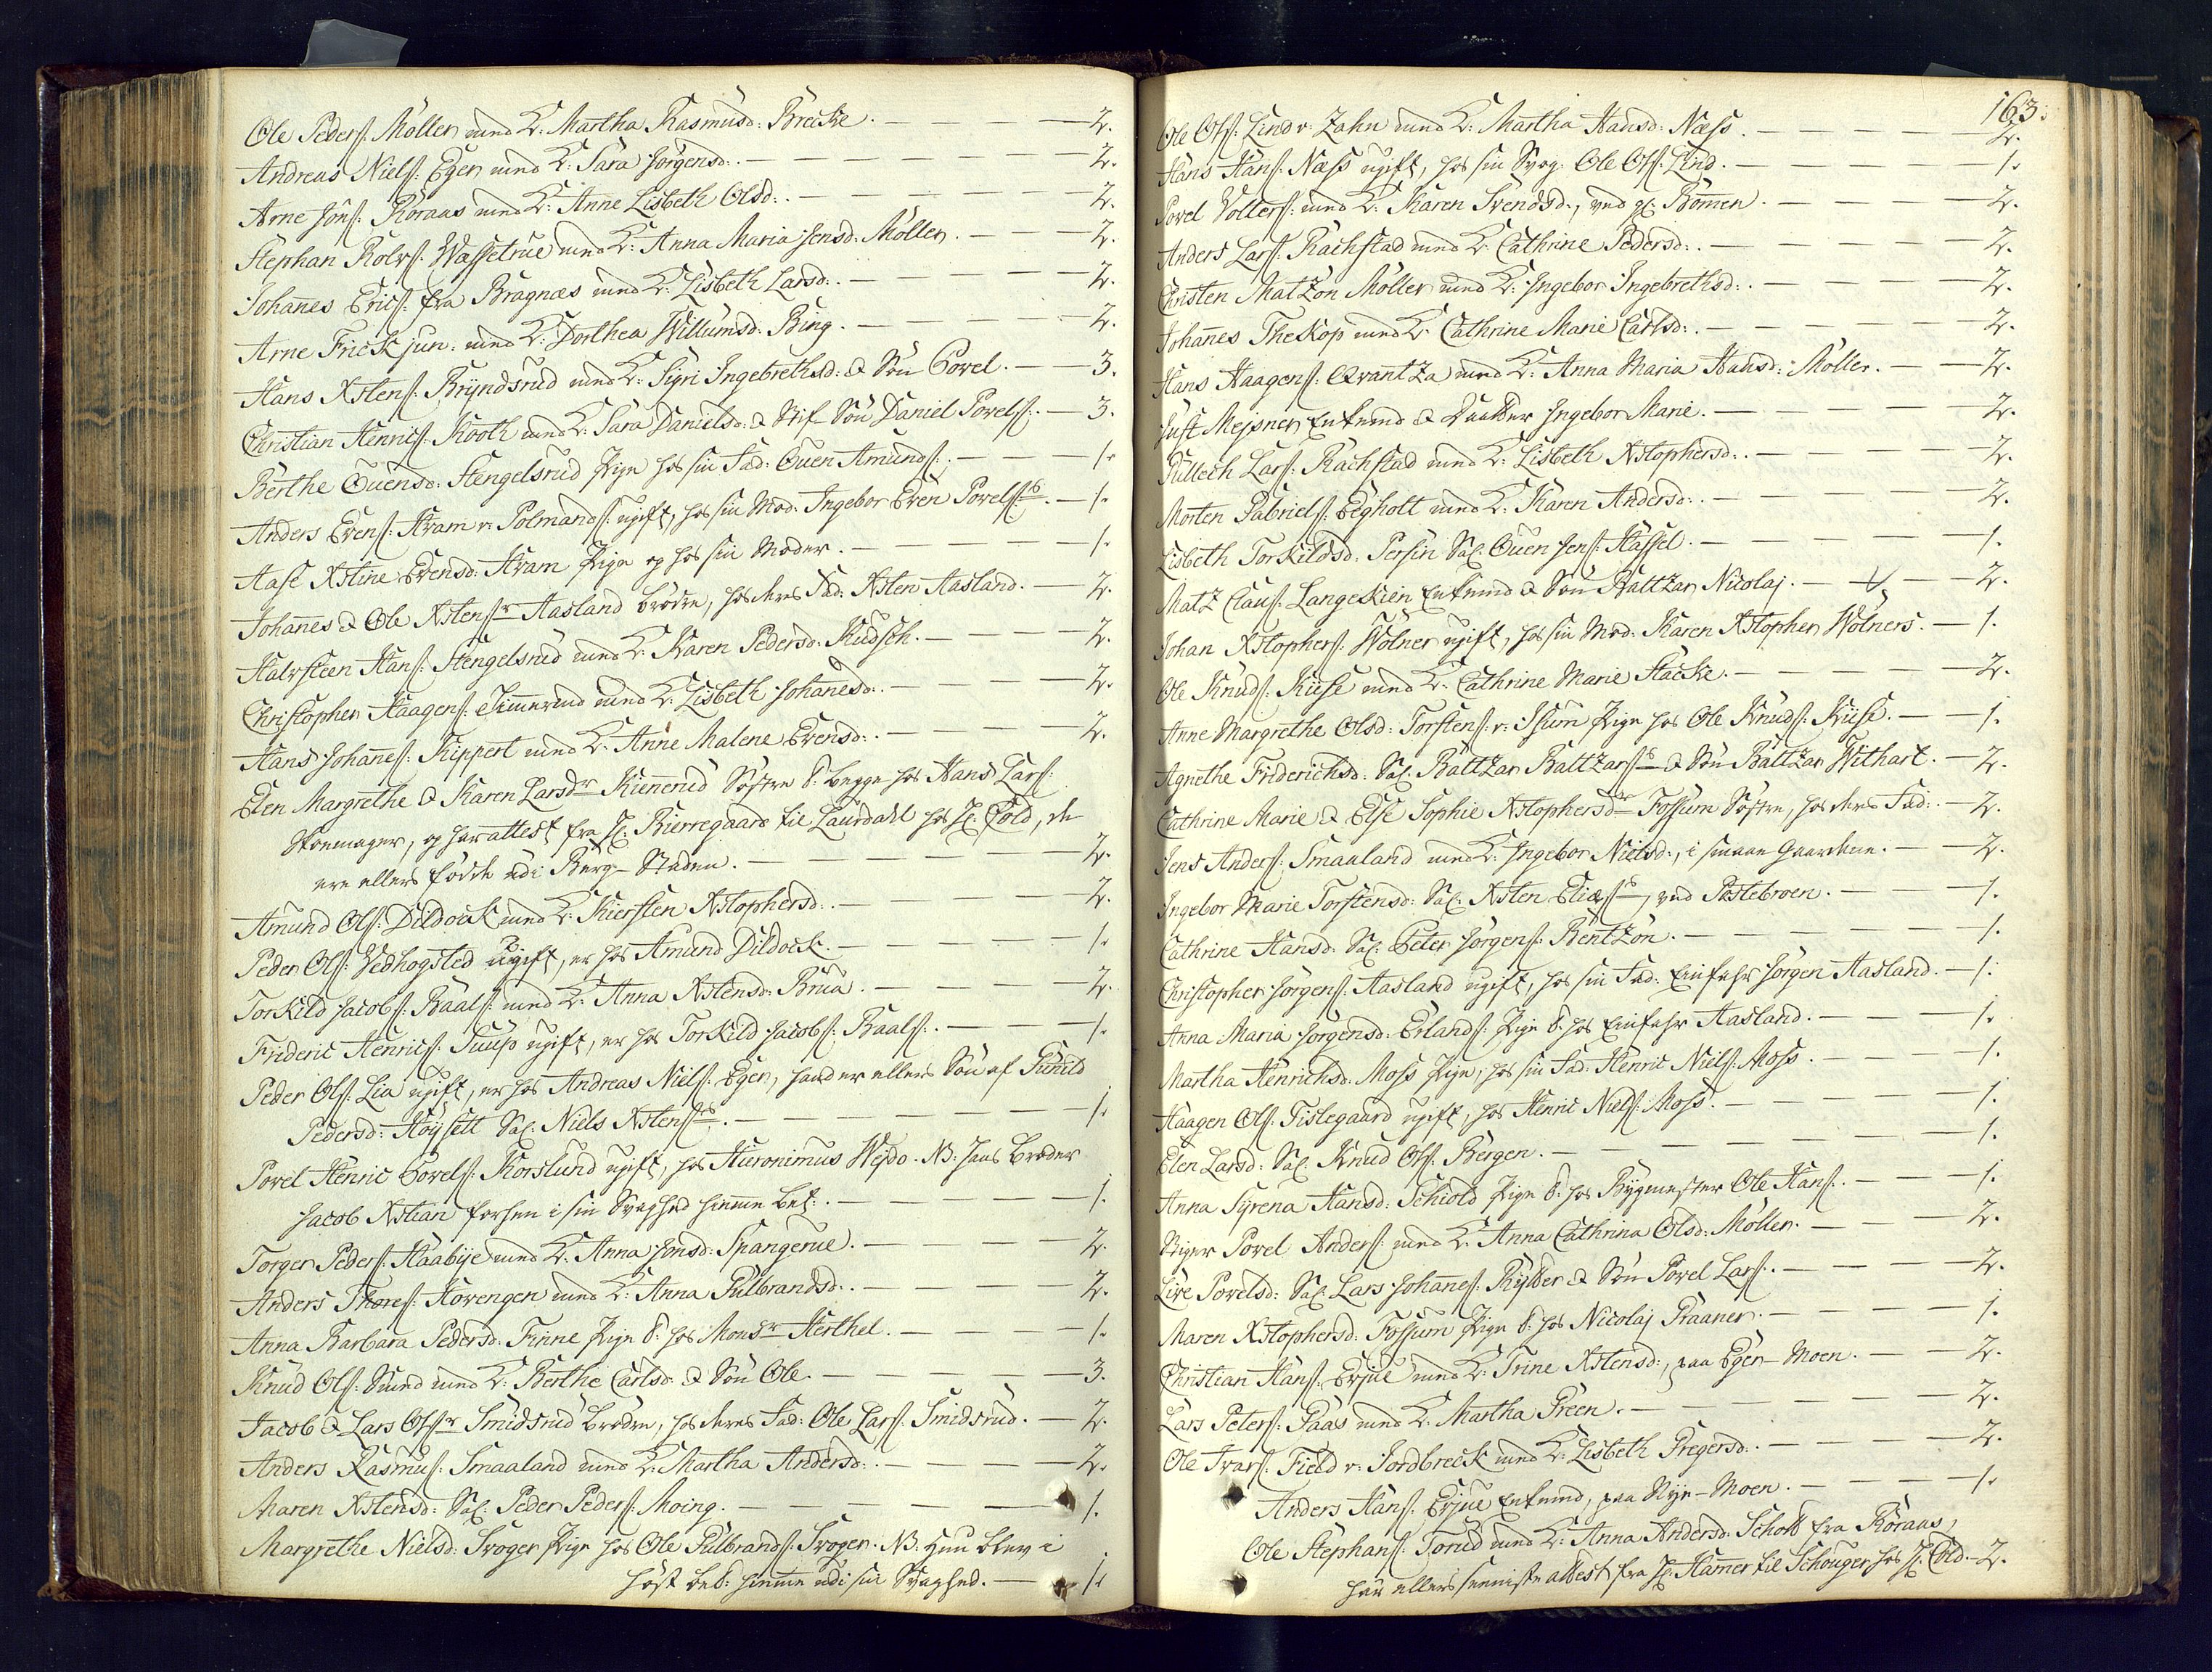 Ole Peders: Möller med K: Martha Rasmusd: Brecke. — 2.
Andreas Niels: Eger med K: Sara Jörgensd:. — 2.
Arne Jöns: Röraas med K: Anne Lisbeth Olsd:. — 2.
Stephan Rolvs: Wassetrue med K: Anna Maria Jensd: Möller. — 2.
Johanes Erics: fra Bragnæs med K: Lisbeth Larsd:. — 2.
Arne Frick jun: med K: Dorthea Willumsd: Bing. — 2.
Hans Xstens: Bryndsrud med K: Sigri Ingebrethsd: & Sön Povel. — 3.
Christian Henrics: Kooth med K: Sara Danielsd: & Stif-Sön Daniel Povels:. — 3.
Berthe Övensd: Stengelsrud Pige hos sin Fad: Öven Amunds:. — 1.
Anders Evens: Hram v: Polmands: ugift, hos sin Mod: Ingebor Even Povels:. — 1.
Aase Xstine Evensd: Hram Pige og hos sin Moder. — 1.
Johanes & Ole Xstens: Aasland brödre, hos deres Fad: Xsten Aasland. — 2.
Halvsteen Hans: Stengelsrud med K: Karen Pedersd: Kudsch. — 2.
Christopher Haagens: Timermd med K: Lisbeth Johanesd:. — 2.
Hans Johanes: Kippert med K: Anne Malene Evensd:. — 2.
Elen Margrethe & Karen Larsd: Kienerud Söstre T: begge hos Hans Lars:
Skoemager, og har attest fra H: Bierregaard til Laurdahl hos H: Cold, de
ere ellers födde udi Berg-Staden. — 2.
Amund Ols: Dildock med K: Kiersten Xstophersd:. — 2.
Peder Ols: Vedhogsted ugift, er hos Amund Dildock. — 1.
Torkild Jacobs: Baals: med K: Anna Xstensd: Brua. — 2.
Frideric Henrics: Tuusp ugift, er hos Torkild Jacobs: Baals:. — 1.
Peder Ols: Lia ugift, er hos Andreas Niels: Eger, hand er ellers Sön af Gunild
Pedersd: Höysett Sal: Niels Xstens:. — 1.
Povel Henric Povels: Korslund ugift, hos Hieronimus Wejdo. NB: hans broder
Jacob Xstian forhen i sin Svaghed hieme bet:. — 1.
Torger Peders: Haabye med K: Anna Jonsd: Spangerue. — 2.
Anders Thores: Hovengen med K: Anna Gulbrandsd:. — 2.
Anna Barbara Pedersd: Finne Pige T: hos Monsr Herthel. — 1.
Knud Ols: Smed med K: Berthe Carlsd: & Sön Ole. — 3.
Jacob & Lars Ols: Smidsrud brödre, hos deres Fad: Ole Lars: Smidsrud. — 2.
Anders Rasmus: Smaaland med K: Martha Andersd:. — 2.
Maren Xstensd: Sal: Peder Peders: Moing. — 1.
Margrethe Nielsd: Troger Pige hos Ole Gulbrands: Troger. NB: hun blev i
Höst bet: hieme udi sin Svaghed. — 1.
163.
Ole Ols: Lind v: Zahn med K: Martha Hansd: Næss. — 2.
Hans Hans: Næss ugift, hos sin Svog: Ole Ols: Lind. — 1.
Povel Volters: med K: Karen Svendsd:, ved gl: Bomen. — 2.
Anders Lars: Rachstad med K: Cathrine Pedersd:. — 2.
Christen Matzon Möller med K: Ingebor Ingebrethsd:. — 2.
Johanes Theskop med K: Cathrine Marie Carlsd:. — 2.
Hans Haagens: Qvantza med K: Anna Maria Hansd: Möller. — 2.
Just Mejsner Enkemd & Daatter Ingebor Marie. — 2.
Gullech Lars: Rachstad med K: Lisbeth Xstophersd:. — 2.
Morten Gabriels: Egholt med K: Karen Andersd:. — 2.
Lisbeth Torkildsd: Persin Sal: Öven Jens: Hassel. — 1.
Matz Claus: Langeskien Enkemd & Sön Balttzar Nicolaj. — 2.
Johan Xstophers: Wölner ugift, hos sin Mod: Karen Xstopher Wölners. — 1.
Ole Knuds: Kiise med K: Cathrine Marie Stacke. — 2.
Anne Margrethe Olsd: Torstens: v: Isum Pige hos Ole Knuds: Kiise. — 1.
Agnethe Friderichsd: Sal: Balttzar Balttzars: & Sön Balttzar Withart. — 2.
Cathrine Marie & Else Sophie Xstophersd: Fossum Söstre, hos deres Fad:. — 2.
Jens Anders: Smaaland med K: Ingebor Nielsd:, i smaae Gaardene. — 2.
Ingebor Marie Torstensd: Sal: Xsten Elias:, ved Postebroen. — 1.
Cathrine Hansd: Sal: Peter Jörgens: Bentzon. — 1.
Christopher Jörgens: Aasland ugift, hos sin Fad: Einfahr Jörgen Aasland. — 1.
Anna Maria Jörgensd: Erlands: Pige T: hos Einfahr Aasland. — 1.
Martha Henrichsd: Moss Pige, hos sin Fad: Henric Niels: Moss. — 1.
Haagen Ols: Tislegaard ugift, hos Henric Niels: Moss. — 1.
Elen Larsd: Sal: Knud Ols: Bergen. — 1.
Anna Syrena Hansd: Schiold Pige T: hos Bygmester Ole Hans:. — 1.
Stiger Povel Anders: med K: Anna Cathrina Olsd: Möller. — 2.
Live Povelsd: Sal: Lars Johanes: Rytter & Sön Povel Lars:. — 2.
Maren Xstophersd: Fossum Pige T: hos Nicolaj Praaner. — 1.
Christian Hans: Erjue med K: Trine Xstensd:, paa Eger-Moen. — 2.
Lars Peters: Paas med K: Martha Preen. — 2.
Ole Ivars: Field v: Jordbreck med K: Lisbeth Gregersd:. — 2.
Anders Hans: Erjue Enkemd, paa Nye-Moen. — 1.
Ole Stephans: Torud med K: Anna Andersd: Schott fra Röraas,
har ellers seeniste attest fra H: Hamer til Schouger hos H: Cold. — 2.